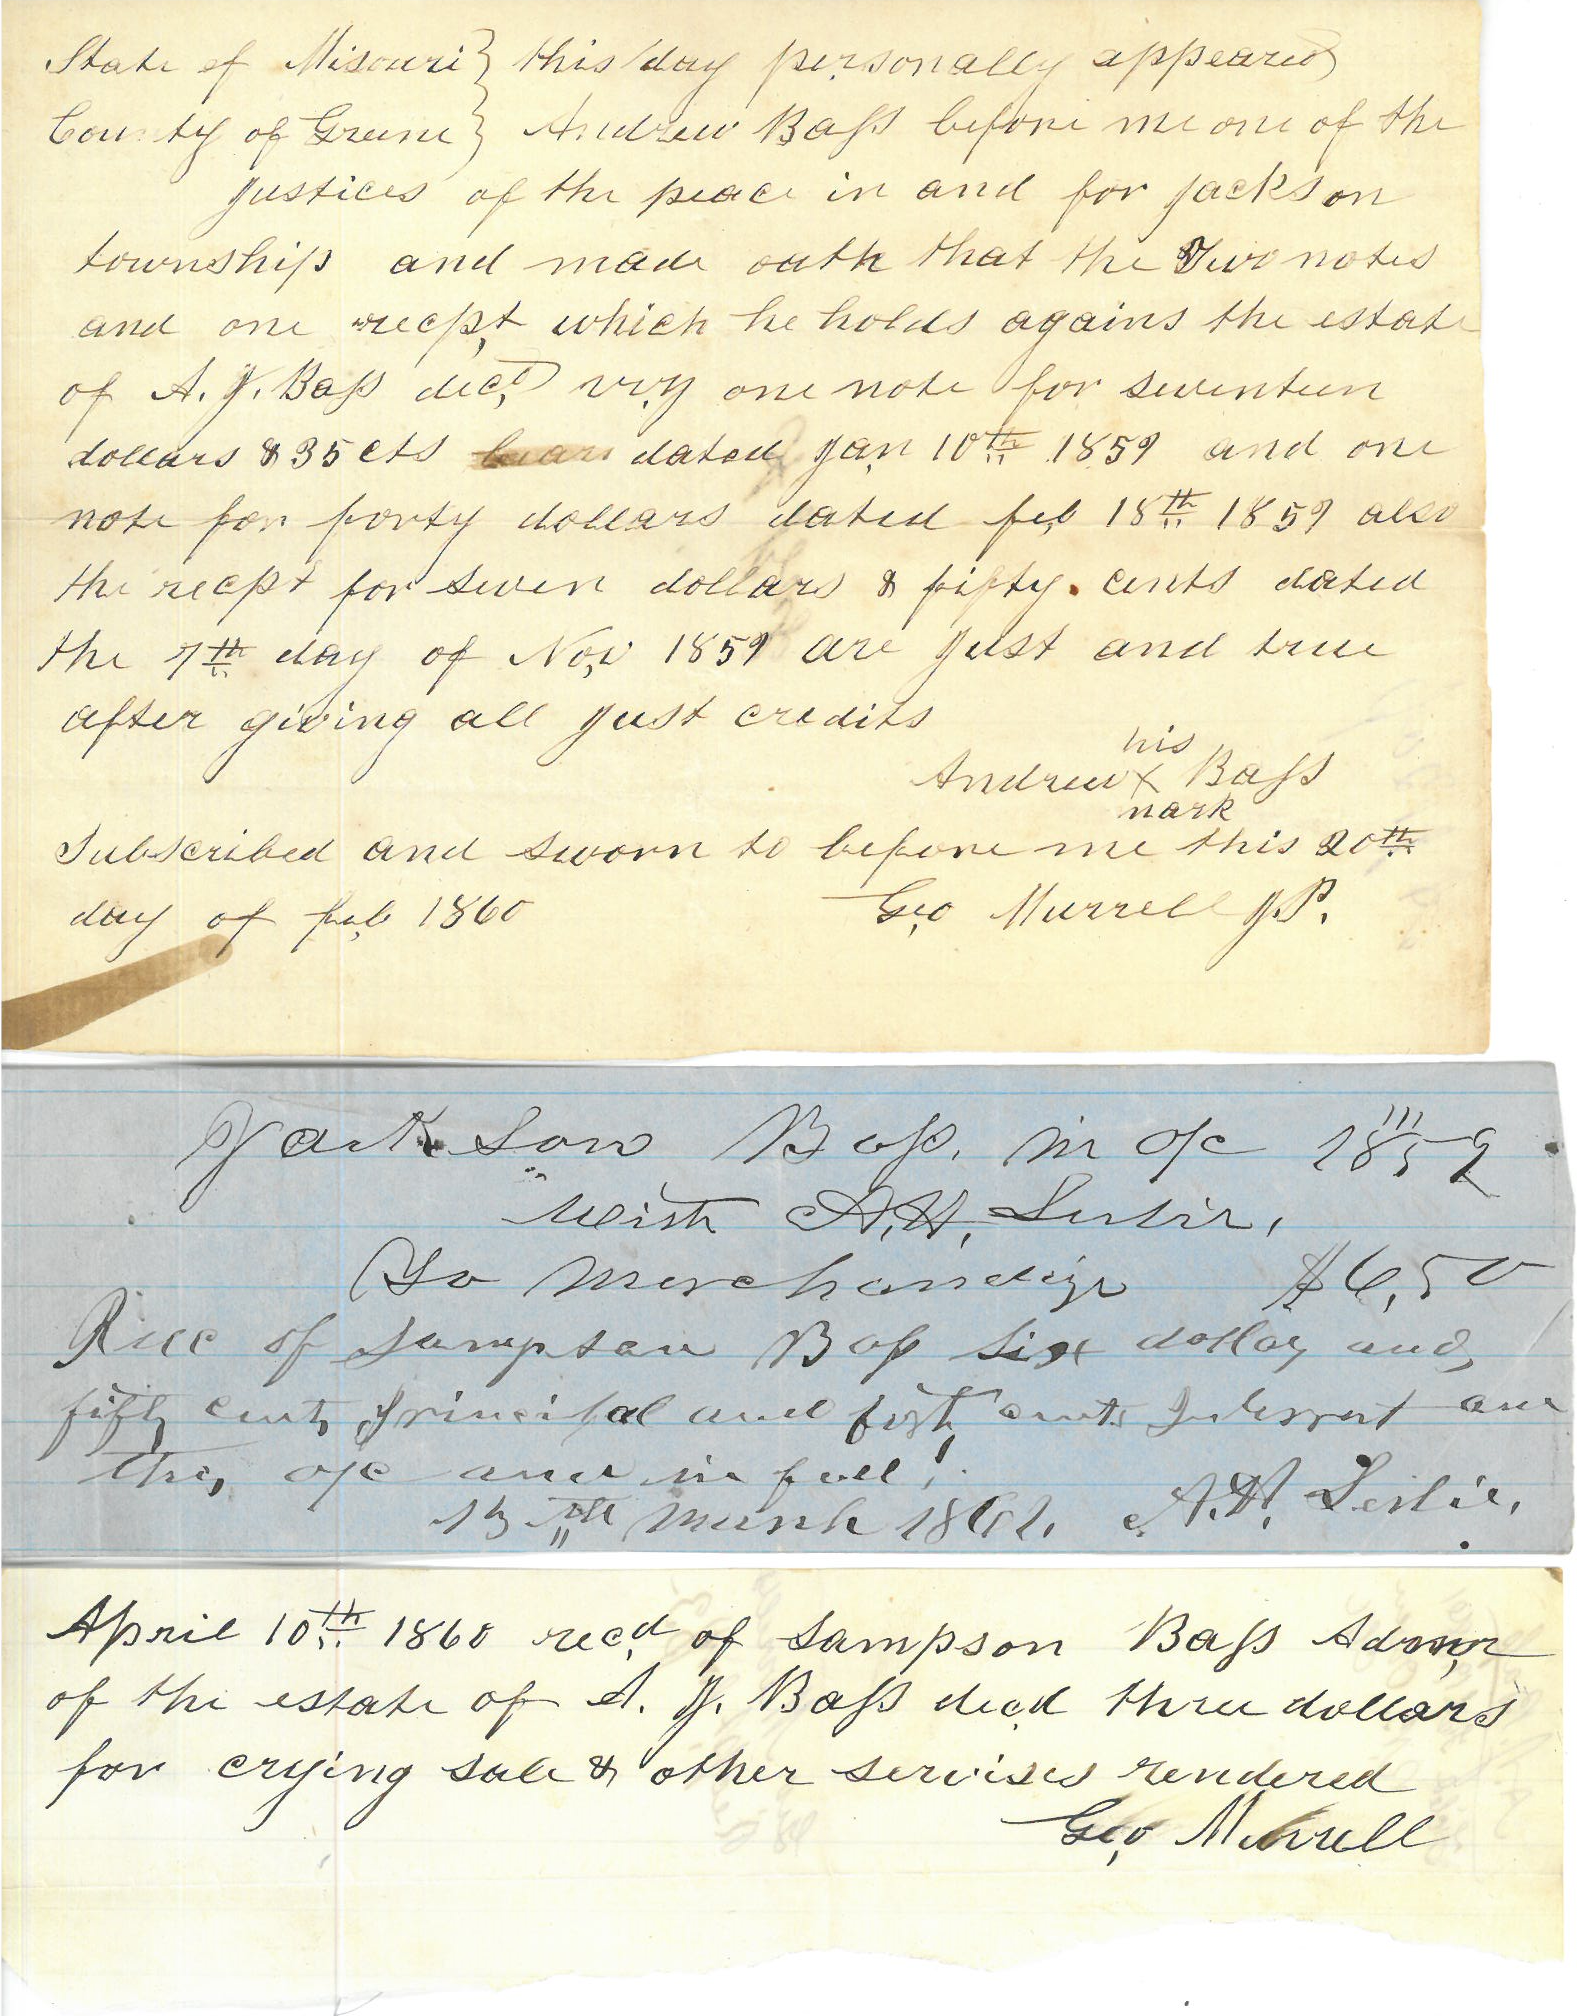 State of Misouri } this day personally appeared
County of Greene } Andrew Bass before me one of the
justices of the peace in and for jackson
township and made oath that the Two notes
and one recpt which he holds agains the estate
of A. J. Bass decd viz one note for seventeen
dollars & 35 cts dated Jan 10th 1859 and one
note for forty dollars dated feb 18th 1859 also
the recpt for seven dollars & fifty cents dated
the 7th day of Nov 1859 are just and true
after giving all just credits
his
Andrew X Bass
mark
Subscribed and sworn to before me this 20th
day of feb 1860 Geo Murrell J.P.
Jackson Bass. in a/c 1859
with A. H. Leslie,
To Merchandize $6,50
Recc of Sampson Bass six dollars and
fifty cents Principal and cents Interest on
this a/c and in full.
13th March 1861. A. H. Leslie.
April 10th 1860 recd of Sampson Bass Admr
of the estate of A. J. Bass decd three dollars
for crying sale & other servises rendered
Geo Murrell